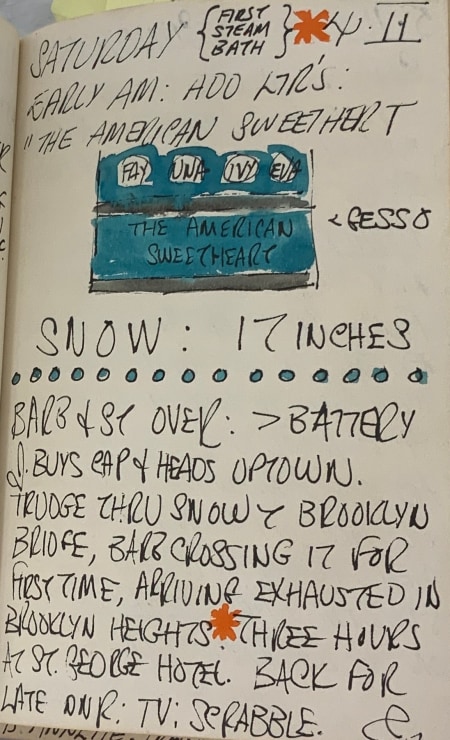 SATURDAY {FIRST STEAM BATH}
EARLY AM: ADD LTR'S:
"THE AMERICAN SWEETHERT
FAY UNA IVY EVA
THE AMERICAN
SWEETHEART
< GESSO
SNOW: 17 INCHES
BARB & ST OVER: > BATTERY
J. BUYS CAP & HEADS UPTOWN.
TRUDGE THRU SNOW & BROOKLYN
BRIDGE, BARB CROSSING IT FOR
FIRST TIME, ARRIVING EXHAUSTED IN
BROOKLYN HEIGHTS. THREE HOURS
AT ST. GEORGE HOTEL. BACK FOR
LATE DNR: TV: SCRABBLE.